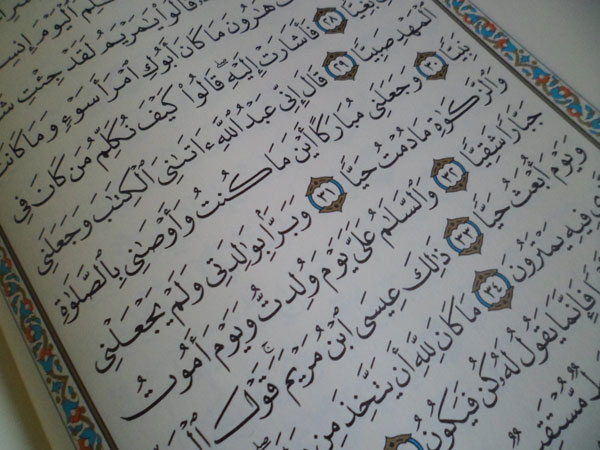 ٱلْيَوْمَ
قَالُوا۟ يَٰمَرْيَمُ لَقَدْ جِئْتِ
هَٰرُونَ مَا كَانَ أَبُوكِ ٱمْرَأَ سَوْءٍ وَمَا كَانَتْ
بَغِيًّا ٢٨ فَأَشَارَتْ إِلَيْهِ قَالُوا۟ كَيْفَ نُكَلِّمُ مَن كَانَ فِى
ٱلْمَهْدِ صَبِيًّا ٢٩ قَالَ إِنِّى عَبْدُ ٱللَّهِ ءَاتَىٰنِىَ ٱلْكِتَٰبَ وَجَعَلَنِى
نَبِيًّا ٣٠ وَجَعَلَنِى مُبَارَكًا أَيْنَ مَا كُنتُ وَأَوْصَٰنِى بِٱلصَّلَوٰةِ
وَٱلزَّكَوٰةِ مَا دُمْتُ حَيًّا ٣١ وَبَرًّۢا بِوَٰلِدَتِى وَلَمْ يَجْعَلْنِى
جَبَّارًا شَقِيًّا ٣٢ وَٱلسَّلَٰمُ عَلَىَّ يَوْمَ وُلِدتُّ وَيَوْمَ أَمُوتُ
وَيَوْمَ أُبْعَثُ حَيًّا ٣٣ ذَٰلِكَ عِيسَى ٱبْنُ مَرْيَمَ قَوْلَ
فِيهِ يَمْتَرُونَ ٣٤ مَا كَانَ لِلَّهِ أَن يَتَّخِذَ مِن
فَإِنَّمَا يَقُولُ لَهُۥ كُن فَيَكُونُ